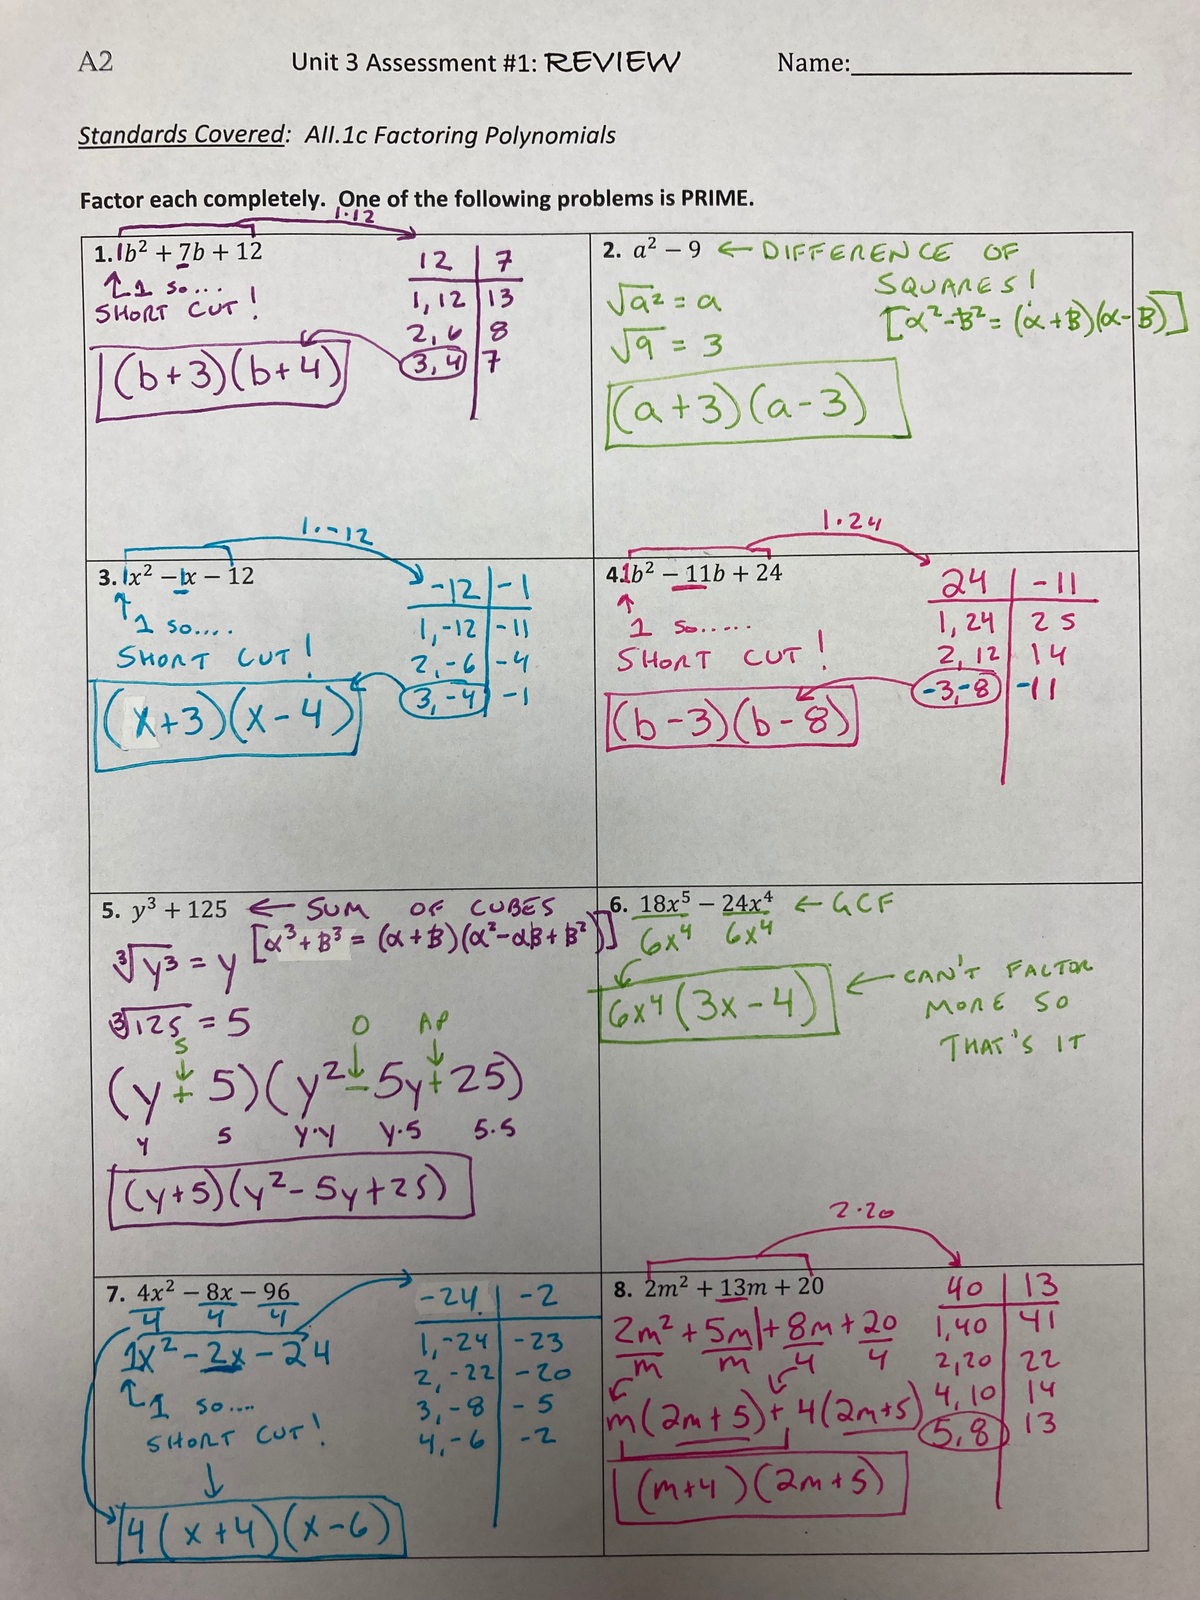 A2 Unit 3 Assessment #1: REVIEW Name:
Standards Covered: AII.1c Factoring Polynomials
Factor each completely. One of the following problems is PRIME.
1·12
1. 1b² + 7b + 12
↑1 so...
SHORT CUT!
12 | 7
1, 12 | 13
2, 6 | 8
3, 4 | 7
(b+3)(b+4)
2. a² − 9 ← DIFFERENCE OF
SQUARES!
[α²-β² = (α+β)(α-β)]
√a² = a
√9 = 3
(a+3)(a-3)
1·-12
3. 1x² − 1x − 12
↑1 so....
SHORT CUT!
-12 | -1
1, -12 | -11
2, -6 | -4
3, -4 | -1
(x+3)(x-4)
1·24
4. 1b² − 11b + 24
↑
1 so.....
SHORT CUT!
24 | -11
1, 24 | 25
2, 12 | 14
-3, -8 | -11
(b-3)(b-8)
5. y³ + 125 ← SUM OF CUBES
[α³+β³ = (α+β)(α²-αβ+β²)]
∛y³ = y
∛125 = 5
S O AP
(y + 5)(y² - 5y + 25)
y 5 y·y y·5 5·5
(y+5)(y²-5y+25)
6. 18x⁵ − 24x⁴ ← GCF
6x⁴ 6x⁴
6x⁴(3x-4)
← CAN'T FACTOR
MORE SO
THAT'S IT
7. 4x² − 8x − 96
4 4 4
1x² - 2x - 24
↑1 so....
SHORT CUT!
-24 | -2
1, -24 | -23
2, -22 | -20
3, -8 | -5
4, -6 | -2
4(x+4)(x-6)
2·20
8. 2m² + 13m + 20
2m² + 5m | + 8m + 20
m m 4 4
m(2m+5) + 4(2m+5)
40 | 13
1, 40 | 41
2, 20 | 22
4, 10 | 14
5, 8 | 13
(m+4)(2m+5)